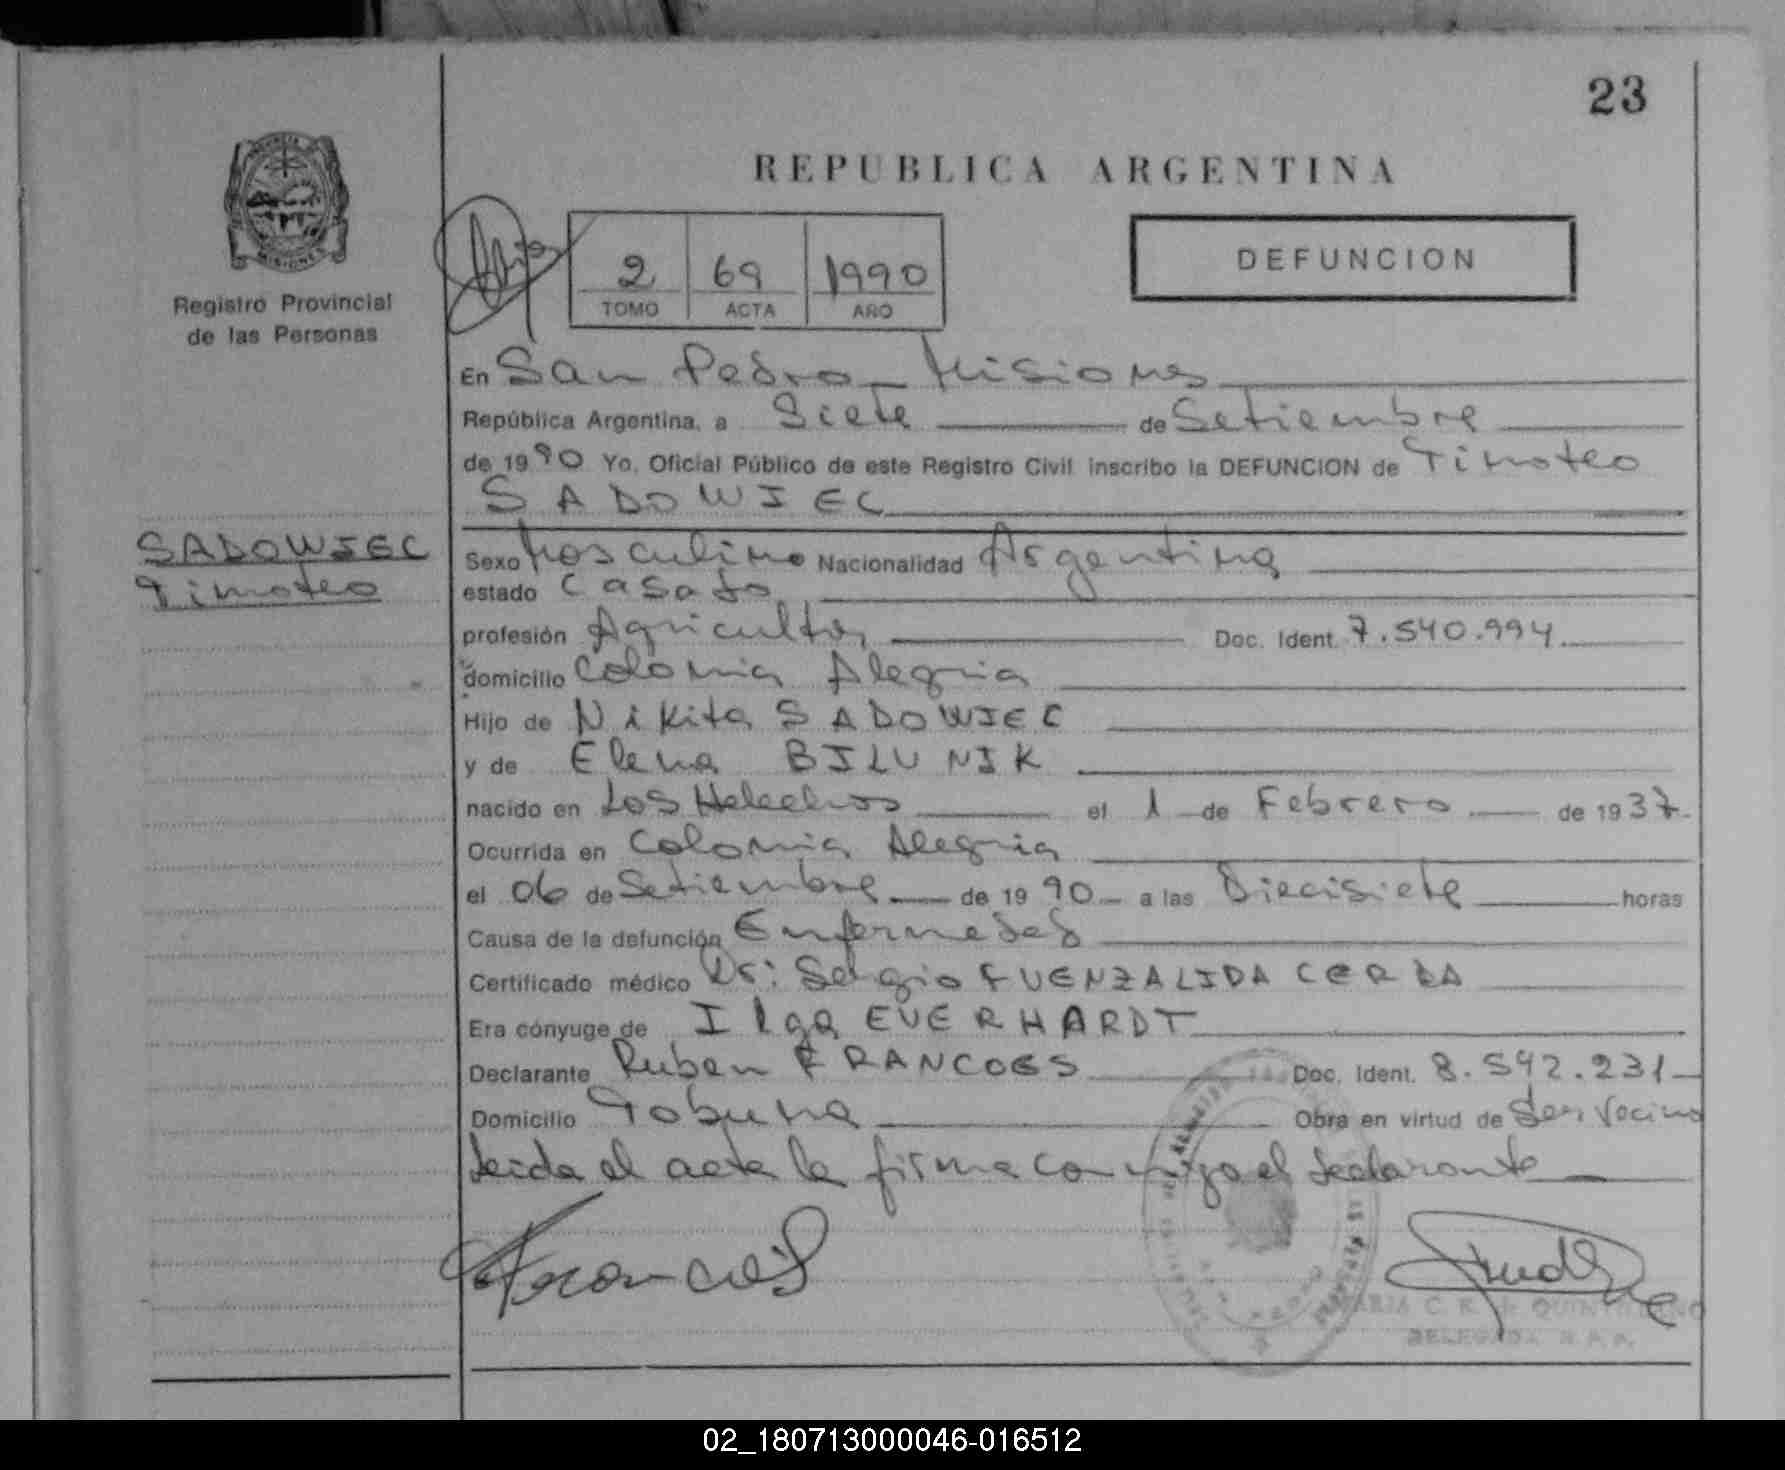 23
REPUBLICA ARGENTINA
PROVINCIA
MISIONES
Registro Provincial
de las Personas
2 69 1990
TOMO ACTA AÑO
DEFUNCION
En San Pedro - Misiones
República Argentina, a Siete de Setiembre
de 1990 Yo, Oficial Público de este Registro Civil inscribo la DEFUNCION de Timoteo
SADOWIEC
SADOWIEC
Timoteo
Sexo Masculino Nacionalidad Argentina
estado Casado
profesión Agricultor Doc. Ident. 7.540.994
domicilio Colonia Alegria
Hijo de Nikita SADOWIEC
y de Elena BILUNIK
nacido en Los Helechos el 1 de Febrero de 1937
Ocurrida en Colonia Alegria
el 06 de Setiembre de 1990 a las Diecisiete horas
Causa de la defunción Enfermedad
Certificado médico Dr: Sergio FUENZALIDA CERDA
Era cónyuge de Ilga EVERHARDT
Declarante Ruben FRANCOES Doc. Ident. 8.592.231
Domicilio Tobuna Obra en virtud de Ser vecino
Leida el acta la firma conmigo el declarante
MARIA C. R. de QUINTILIANO
DELEGADA R.P.P.
02_180713000046-016512